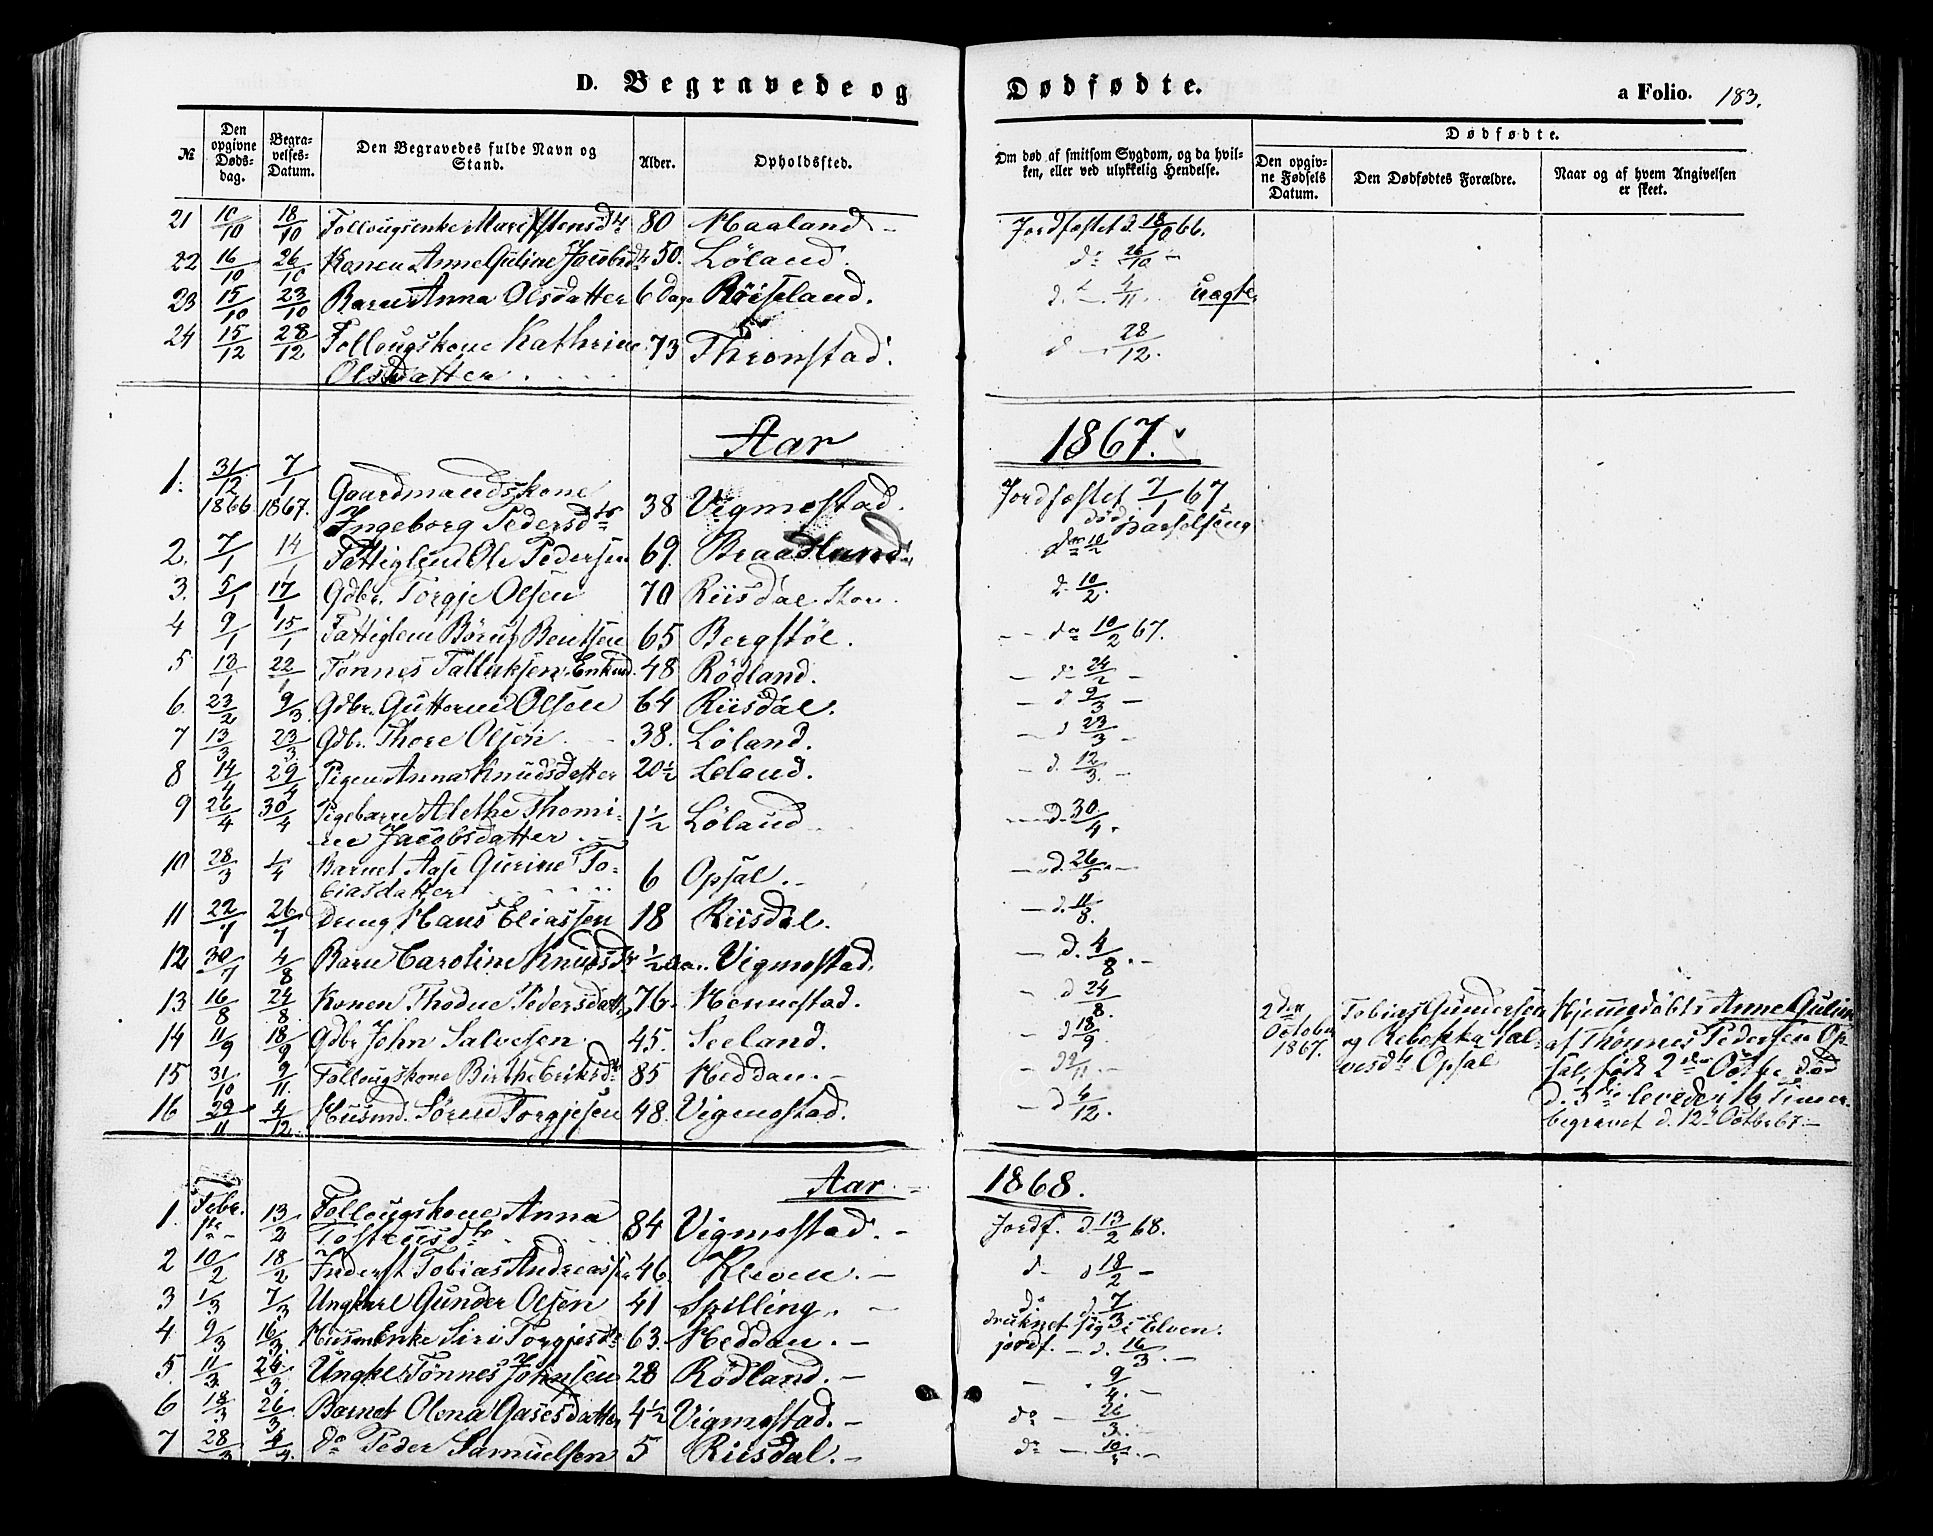 D. Begravede og Dødfødte. a Folio. 183.
№ Den opgivne Døds-dag. Begra-velses-Datum. Den Begravedes fulde Navn og Stand. Alder. Opholdssted. Om død af smitsom Sygdom, og da hvil-ken, eller ved ulykkelig Hendelse. Dødfødte. Den opgiv-ne Fødsels Datum. Den Dødfødtes Forældre. Naar og af hvem Angivelsen er skeet.
21 10/10 18/10 Follougsenke Mari 80 Haaland – Jordfæstet d. 18/10 66.
22 16/10 26/10 Konen Anne Guline Jacobsdtr 50. Løland. do 26/10 –
23 15/10 23/10 Barn Anna Olsdatter 6 Dage Röiseland. d. – 4/11. uægte
24 15/12 28/12 Follougskone Kathrine 73 Thronstad. d – 28/12.
Olsdatter
Aar 1867.
1. 31/12 1866 7/1 1867. Gaardmandskone
Ingeborg Pedersdtr 38 Vigmostad. Jordfæstet 7/1 67
død i Barselseng
2. 7/1 14/1 Fattiglem Ole Pedersen 69. Braadland. do 10/2
3. 5/1 17/1 Gdbr. Torgje Olsen 70 Riisdal Store. d. 10/2.
4 9/1 15/1 Fattiglem Böruf Bentsen 65 Bergstöl. – – do 10/2 67.
5 13/1 22/1 Tønnes Tallaksen Enkmd. 48 Rödland. – do 24/2 –
6. 23/2 9/3 Gdbr. Guttorm Olsen 64 Riisdal. – d 9/3 –
7 13/3 23/3 Gdbr. Thore Olsen 38. Löland. – d 23/3 –
8 14/4 29/4 Pigen Anna Knudsdatter 20½ Leland. – d. 12/3. –
9 26/4 30/4 Pigebarn Alethe Thomi-
ne Jacobsdatter 1½ Løland – d. 30/4.
10 28/3 1/4 Barnet Aase Gurine To-
biasdatter 6 Opsal. – – d. 26/5 –
11 22/7 26/7 Dreng Hans Eliassen 18 Riisdal. – d. 11/8.
12 30/7 4/8 Barn Caroline Knudsdtr ½ Aar. Vigmostad. – d. 4/8. –
13 16/8 24/8 Konen Thodne Pedersdatter 76. Hennestad. – d 24/8. 2den October 1867. Tobias Gundersen og Rebekka Sal-vesdtr Opsal Hjemmedøbt Anne Gulina
af Thønnes Pedersen Op-
14 11/9 18/9 Gdbr John Salvesen 45. Seeland. – d 18/9
sal, født 2den Octbr, død
15 31/10 9/11. Follougskone Birthe Eriksdtr 85 Heddan. – – d 9/11. –
d. 3die levede 16 Timer.
16 29/11 4/12 Husmd. Sören Torgjesen 48. Vigmostad. – d 4/12.
begravet d. 12te Octbr 67. –
Aar 1868.
1. Febr. 1ste 13/2 Follougskone Anna
Tosteusdtr 84 Vigmostad. – Jordf. d. 13/2 68.
2 10/2 18/2 Inderst Tobias Andreassen 46. Kleven. – d – d 18/2 –
3 1/3 7/3 Ungkarl Gunder Olsen 41 Spilling. – do d. 7/3
druknet sig i Elven.
4. 9/3 16/3. Husm.Enke Siri Torgjesdtr 63. Heddan. – jordf. – d. 16/3. –
5. 11/3 24/3 Ungk. Tönnes Johnsen 28 Rödland. – – 9/4. –
6 18/3 26/3 Barnet Olena Gasesdatter 4½ Vigmostad. – do – 26/3. –
7 28/3 4/4. do Peder Samuelsen 5 Riisdal. – do – 10/